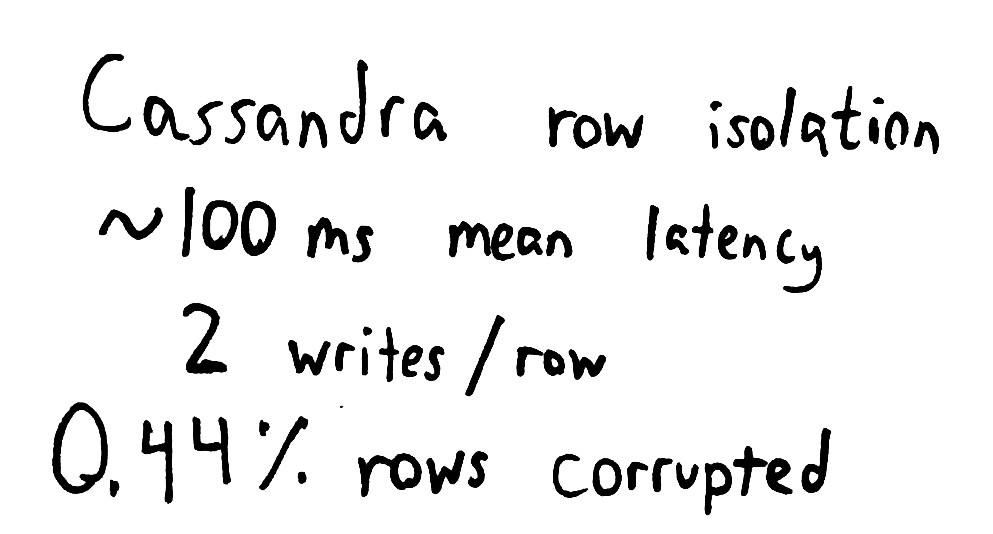 Cassandra row isolation
~100 ms mean latency
2 writes/row
0.44% rows corrupted